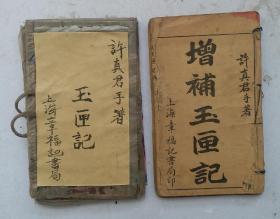 許真君手著
玉匣記
上海章福記書局
許真君手著
增補玉匣記
上海章福記書局印